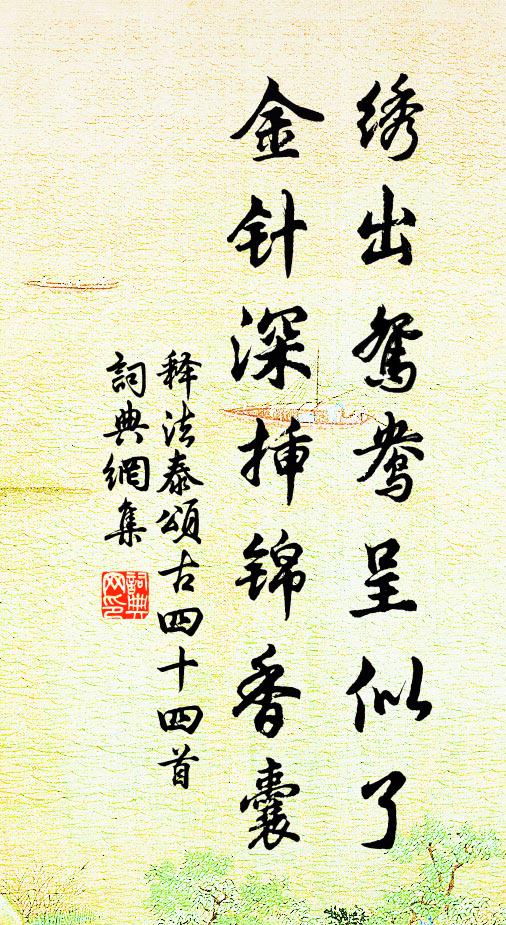 绣出鸳鸯呈似了
金针深插锦香囊
释法泰颂古四十四首
词典网集
詞典网印